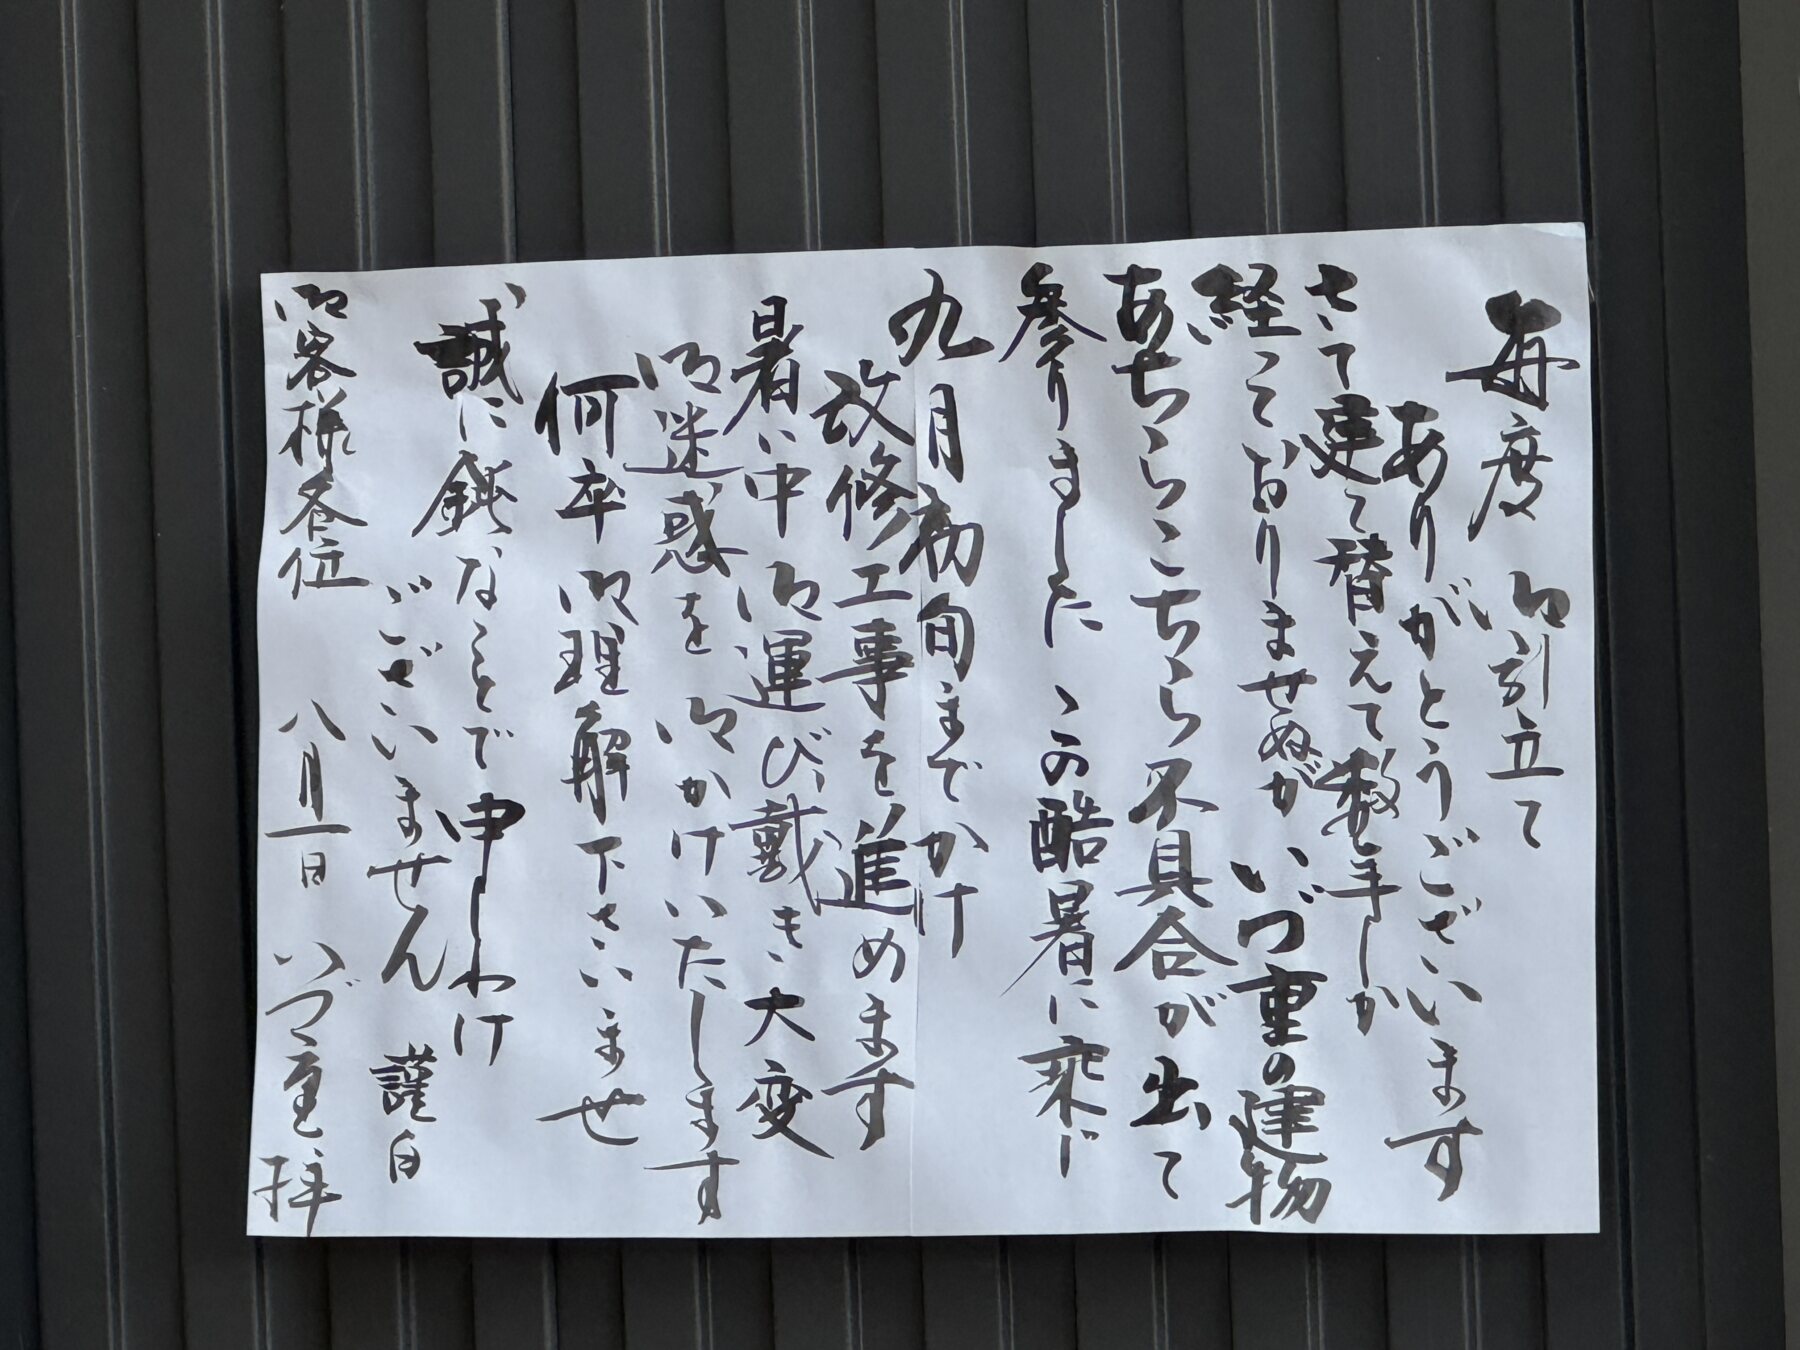 毎度 御引立て
ありがとうございます
さて建て替えて数年しか
経っておりませぬが いづ重の建物
あちらこちら不具合が出て
参りました この酷暑に乗じ
九月初旬までかけ
改修工事を進めます
暑い中御運び戴き大変
御迷惑を御かけいたします
何卒御理解下さいませ
誠に鈍なことで申しわけ
ございません 謹白
八月一日 いづ重 拝
御客様各位